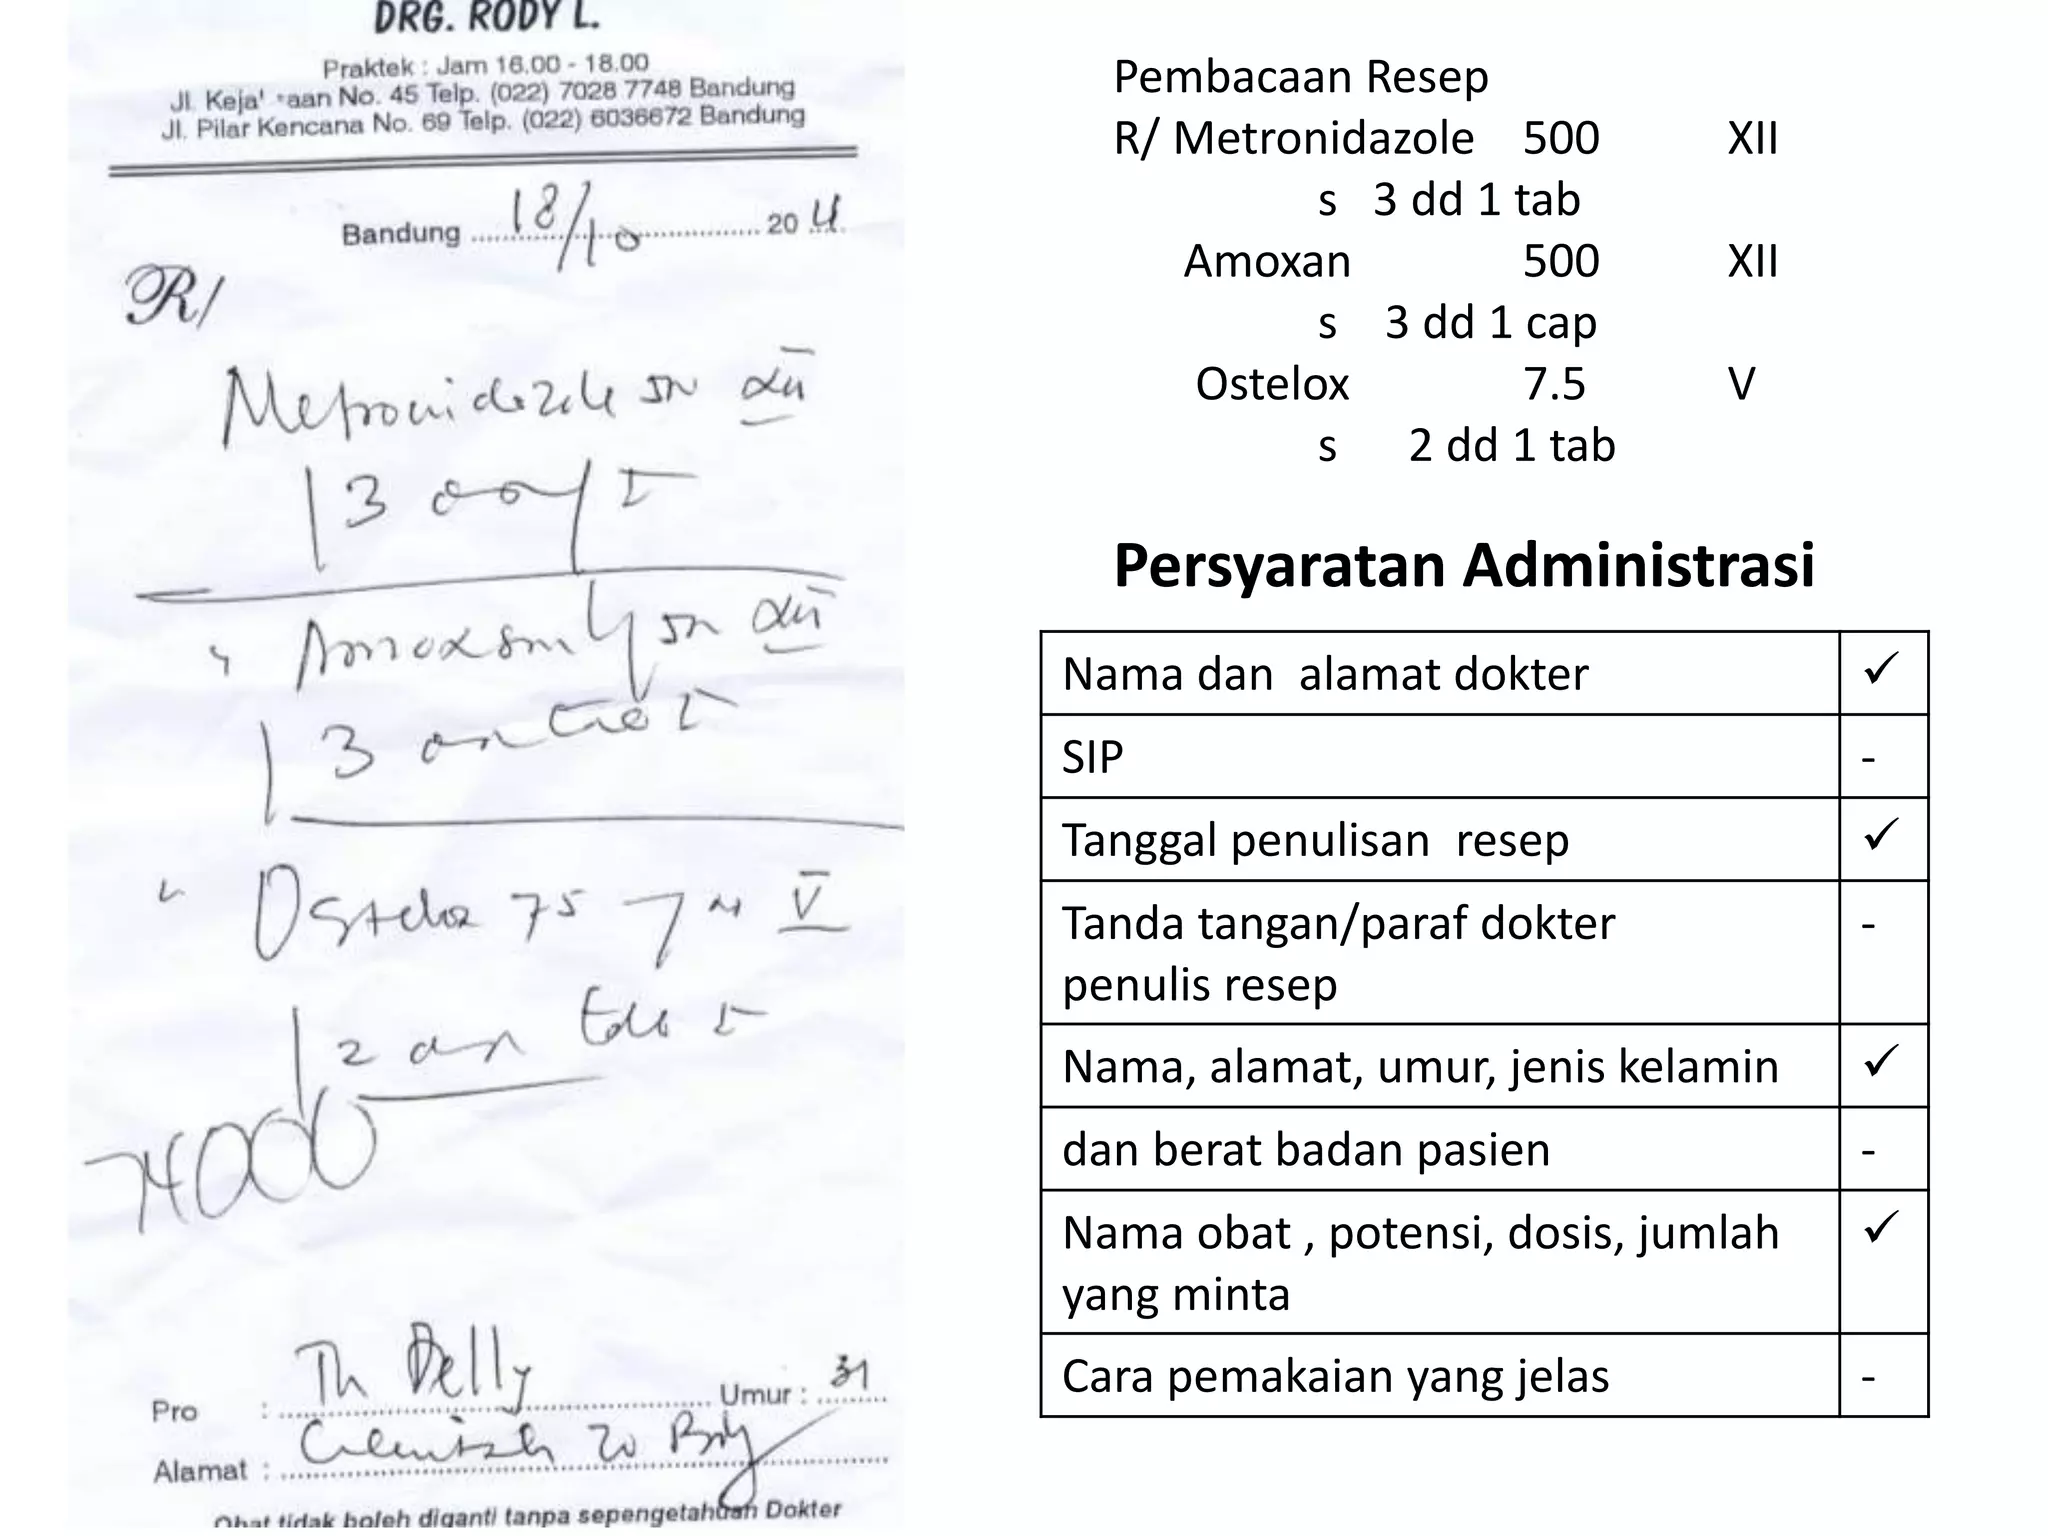 DRG. RODY L.
Praktek : Jam 16.00 - 18.00
Jl. No. 45 Telp. (022) 7028 7748 Bandung
Jl. Pilar Kencana No. 69 Telp. (022) 6036672 Bandung
Bandung 18/10 20
R/
Metronidazole XII
3 I
XII
3 I
Ostelox 75 V
2 I
74000
Pro : Th Delly Umur : 31
Alamat : 20
Obat tidak boleh diganti tanpa sepengetahuan Dokter
Pembacaan Resep
R/ Metronidazole 500 XII
s 3 dd 1 tab
Amoxan 500 XII
s 3 dd 1 cap
Ostelox 7.5 V
s 2 dd 1 tab
Persyaratan Administrasi
Nama dan alamat dokter ✓
SIP -
Tanggal penulisan resep ✓
Tanda tangan/paraf dokter -
penulis resep
Nama, alamat, umur, jenis kelamin ✓
dan berat badan pasien -
Nama obat , potensi, dosis, jumlah ✓
yang minta
Cara pemakaian yang jelas -